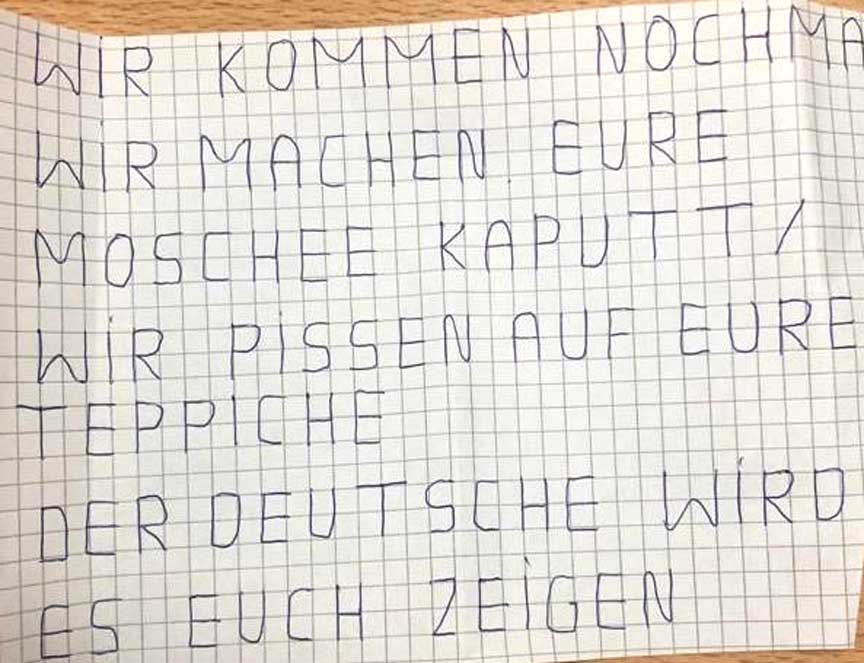 WIR KOMMEN NOCHMA
WIR MACHEN EURE
MOSCHEE KAPUTT/
WIR PISSEN AUF EURE
TEPPICHE
DER DEUTSCHE WIRD
ES EUCH ZEIGEN